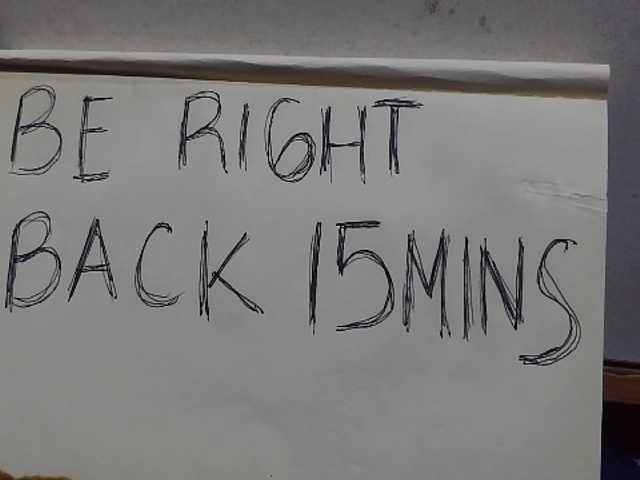 BE RIGHT
BACK 15MINS